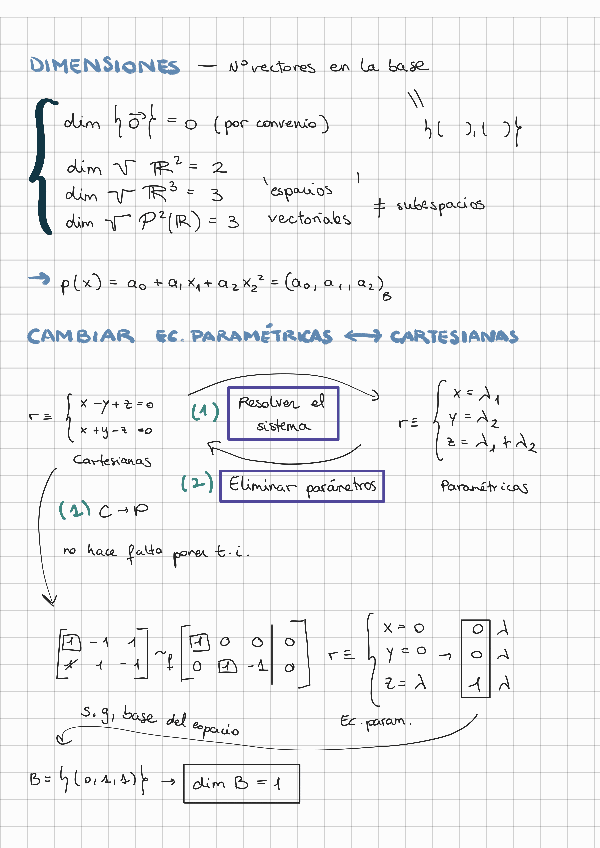 DIMENSIONES — Nº vectores en la base
\\
{( ),( )}
dim {0⃗} = 0 (por convenio)
dim V ℝ² = 2
dim V ℝ³ = 3 'espacios '
dim V P²(ℝ) = 3 vectoriales ≠ subespacios
→ p(x) = a₀ + a₁x₁ + a₂x₂² = (a₀, a₁, a₂)_B
CAMBIAR EC. PARAMÉTRICAS ↔ CARTESIANAS
r ≡ { x - y + z = 0
x + y - z = 0
Cartesianas
(1) Resolver el
sistema
(2) Eliminar parámetros
r ≡ { x = λ₁
y = λ₂
z = λ₁ + λ₂
Paramétricas
(1) C → P
no hace falta poner t.i.
[1 -1 1
1 1 -1] ~f [1 0 0 | 0
0 1 -1 | 0]
r ≡ { x = 0
y = 0 →
z = λ
0 λ
0 λ
1 λ
Ec. param.
s.g, base del espacio
B = {(0,1,1)} → dim B = 1